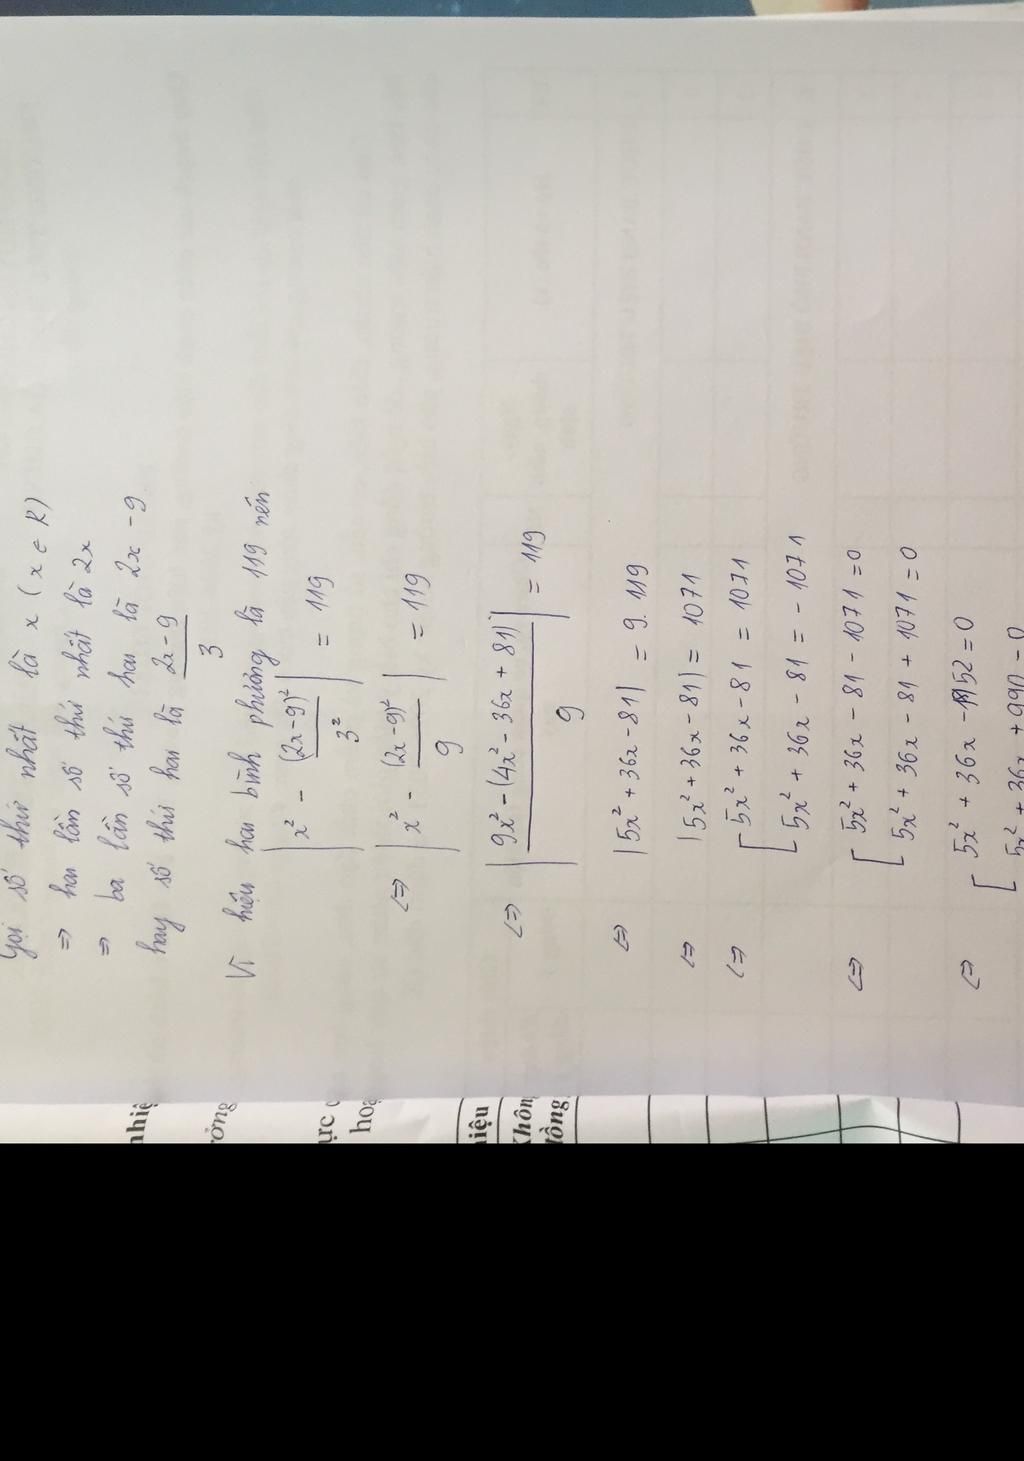 Gọi số thứ nhất là x (x ∈ R)
⇒ hai lần số thứ nhất là 2x
⇒ ba lần số thứ hai là 2x - 9
hay số thứ hai là (2x - 9)/3
Vì hiệu hai bình phương là 119 nên
|x² - (2x-9)²/3²| = 119
⇔ |x² - (2x-9)²/9| = 119
⇔ |(9x² - (4x² - 36x + 81))/9| = 119
⇔ |5x² + 36x - 81| = 9.119
⇔ |5x² + 36x - 81| = 1071
⇔ [ 5x² + 36x - 81 = 1071
[ 5x² + 36x - 81 = - 1071
⇔ [ 5x² + 36x - 81 - 1071 = 0
[ 5x² + 36x - 81 + 1071 = 0
⇔ [ 5x² + 36x - 1152 = 0
[ 5x² + 36x + 990 = 0
nhiệ
ưởng
ực
hoạ
iệu
Khôn
đồng